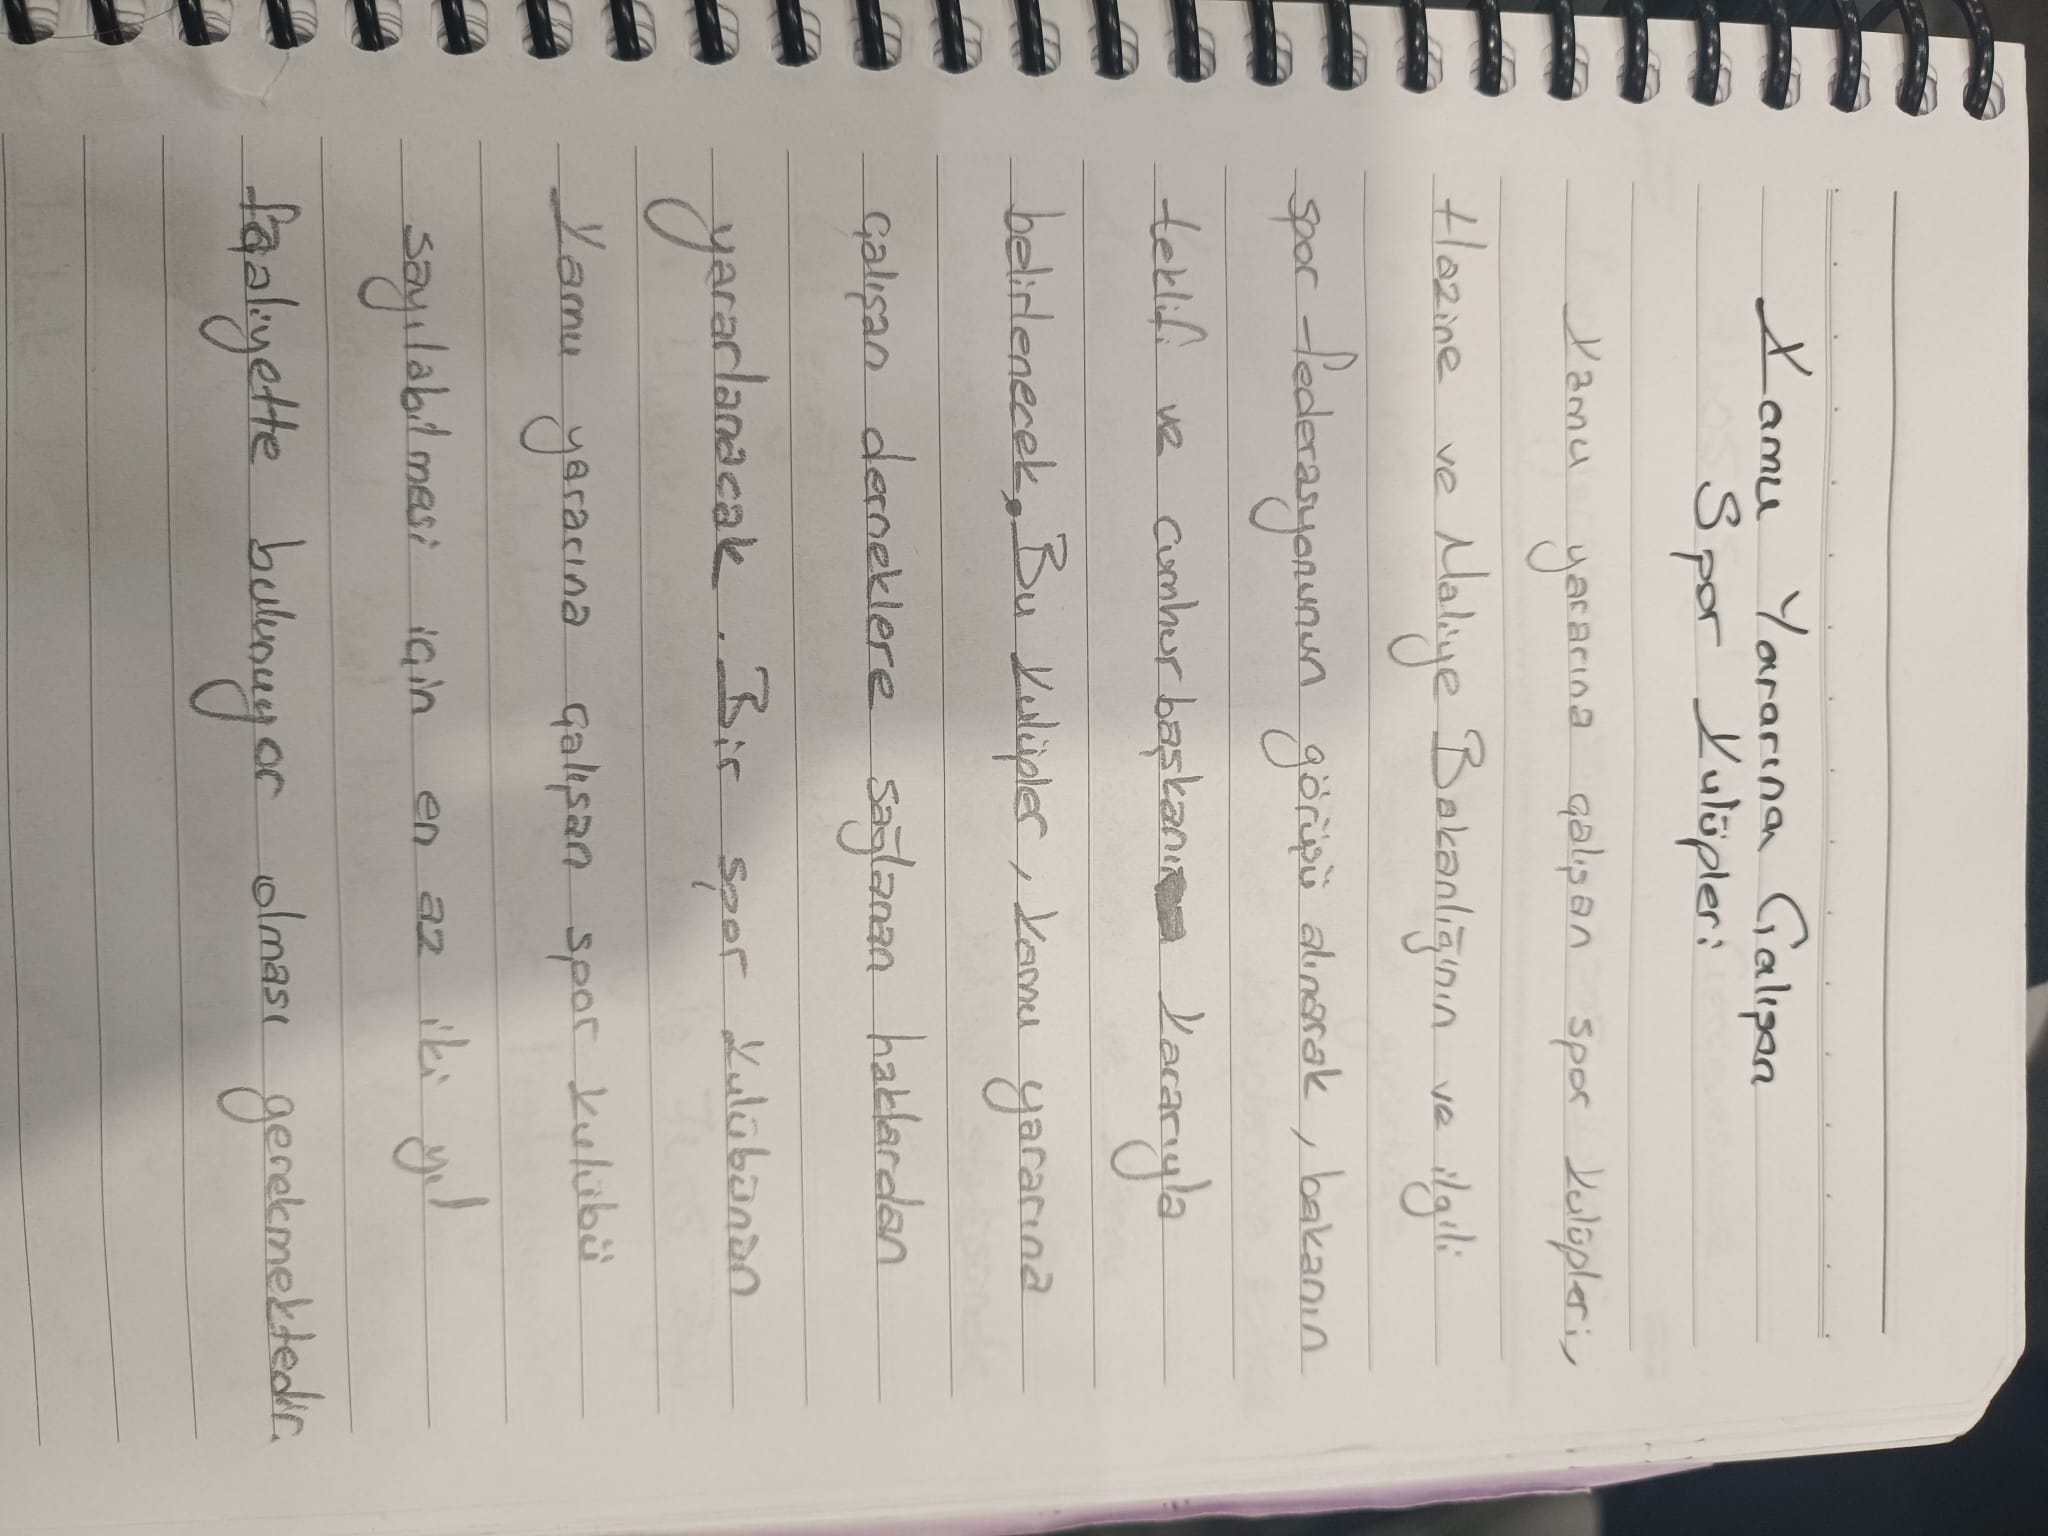 Kamu Yararına Çalışan
Spor Kulüpleri
Kamu yararına çalışan spor kulüpleri,
Hazine ve Maliye Bakanlığının ve ilgili
spor federasyonunun görüşü alınarak, bakanın
teklifi ve cumhurbaşkanı kararıyla
belirlenecek. Bu kulüpler, kamu yararına
çalışan derneklere sağlanan haklardan
yararlanacak. Bir spor kulübünün
kamu yararına çalışan spor kulübü
sayılabilmesi için en az iki yıl
faaliyette bulunuyor olması gerekmektedir.